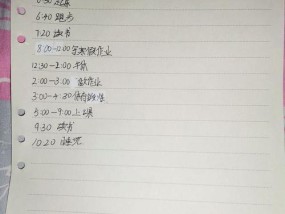 6:40 跑步
7:20 读书
8:00-12:00 做作业
12:30-2:00 午休
2:00-3:00 做作业
3:00-4:30
5:00-9:00 上课
9:30 读书
10:20 睡觉